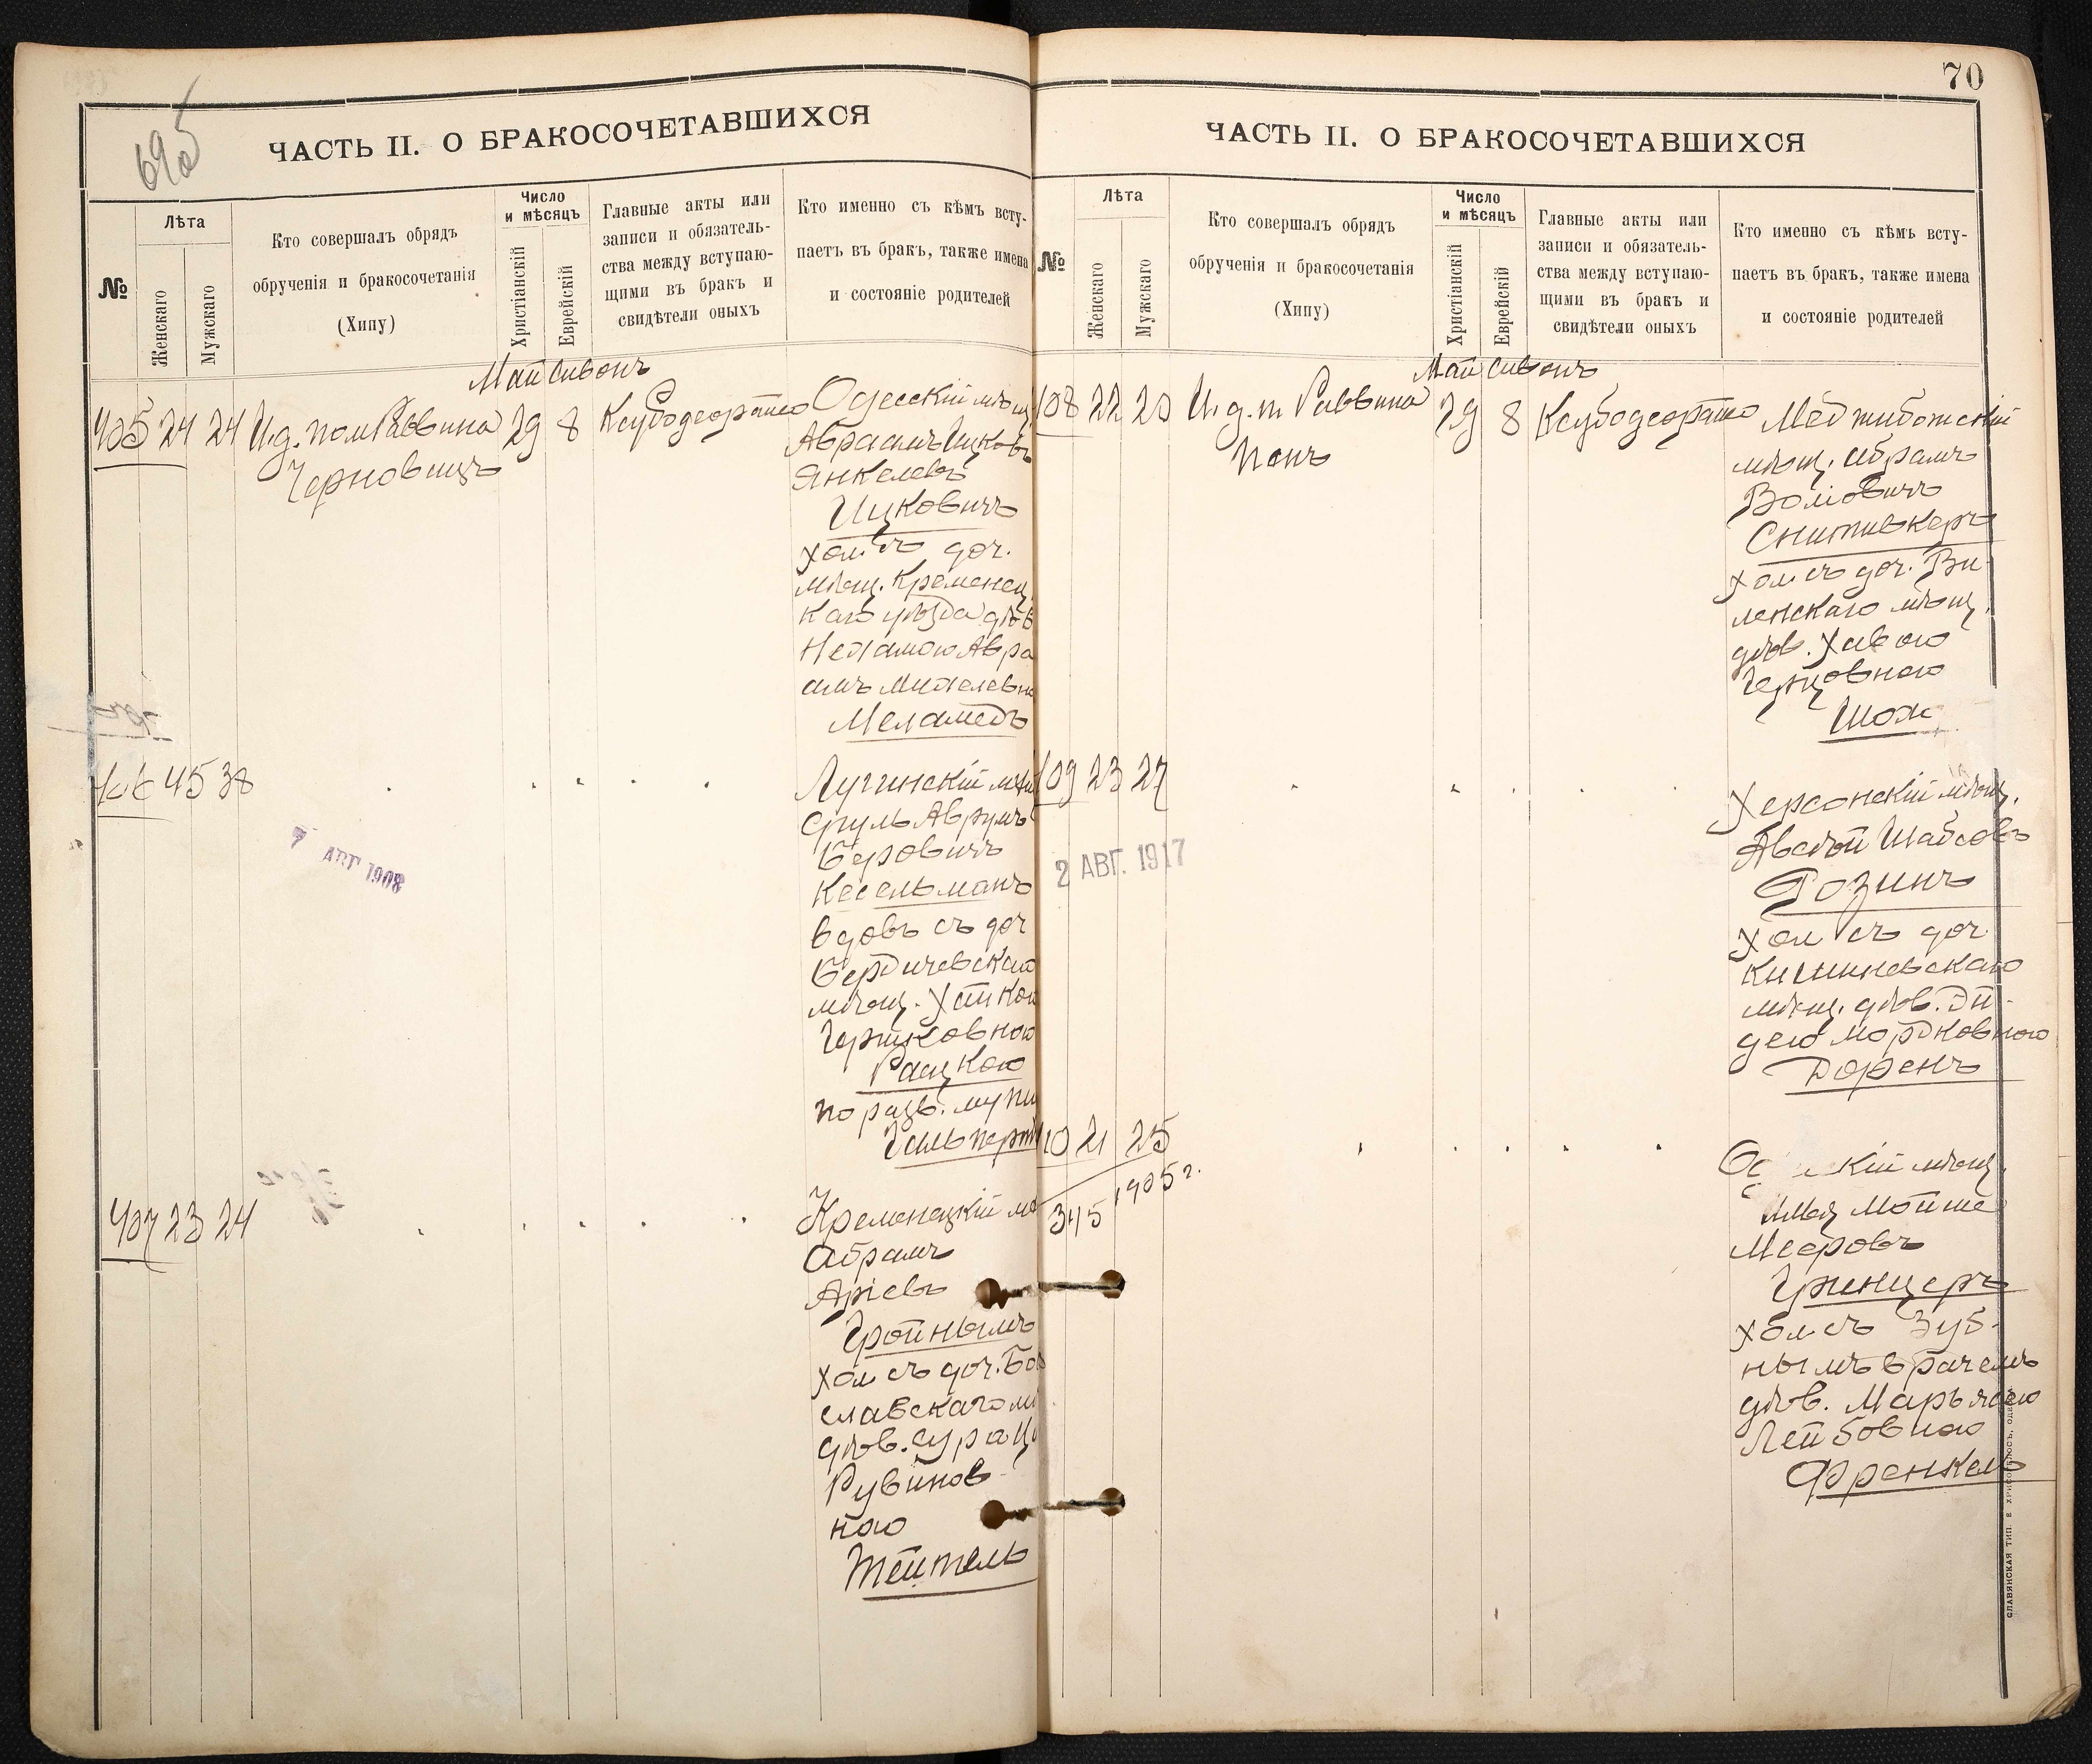 69об
ЧАСТЬ II. О БРАКОСОЧЕТАВШИХСЯ
№
Лѣта
Женскаго
Мужскаго
Кто совершалъ обрядъ
обрученія и бракосочетанія
(Хипу)
Число
и мѣсяцъ
Христіанскій
Еврейскій
Главные акты или
записи и обязатель-
ства между вступаю-
щими въ бракъ и
свидѣтели оныхъ
Кто именно съ кѣмъ всту-
паетъ въ бракъ, также имена
и состояніе родителей
Май Сивонъ
405 24 24 И.д. пом Раввина 29 8
Черновицъ
Одесскій мѣщ
Абрамъ Ицковъ
Янкелевъ
Ицковичъ
хол. съ доч.
мѣщ. Кременец
каго уѣзда дѣв
Нехамою Авра
амъ Михелевно
Меламедъ
45 38
Лугинскій мѣщ
Сруль Аврумъ
Беровичъ
Кесельманъ
вдовъ съ доч
Бердичевскаго
мѣщ.
Рацкою
по разв. мужу
Гальперинъ
7 АВГ 1908
407 23 24
Кременецкій мѣ
Абрамъ
Аріевъ
Тройнымъ
хол съ доч.
славскаго мѣ
дѣв. Сура
Рувинов
ною
Тейтель
70
ЧАСТЬ II. О БРАКОСОЧЕТАВШИХСЯ
№
Лѣта
Женскаго
Мужскаго
Кто совершалъ обрядъ
обрученія и бракосочетанія
(Хипу)
Число
и мѣсяцъ
Христіанскій
Еврейскій
Главные акты или
записи и обязатель-
ства между вступаю-
щими въ бракъ и
свидѣтели оныхъ
Кто именно съ кѣмъ всту-
паетъ въ бракъ, также имена
и состояніе родителей
Май Сивонъ
408 22 23 И.д.п Раввина 29 8
Пенъ
Меджибожскій
мѣщ. Абрамъ
Воліовичъ
Снитивкеръ
хол съ доч. Ви-
ленскаго мѣщ.
дѣв. Хавою
Герцовною
Шож
409 23 27
Херсонскій мѣщ.
Авсѣй Шайсовъ
Розинъ
Хол съ доч.
Кишиневскаго
мѣщ. дѣв. Эй-
дею Мордковною
Доренъ
2 АВГ. 1917
10 21 25
345 1905 г.
мѣщ.
Мойше
Мееровъ
Гринцеръ
хол съ Зуб-
нымъ врачемъ
дѣв. Марьясею
Лейбовною
Френкель
СЛАВЯНСКАЯ ТИП. Е ХРИСОГЕЛОСЪ, ОДЕССА